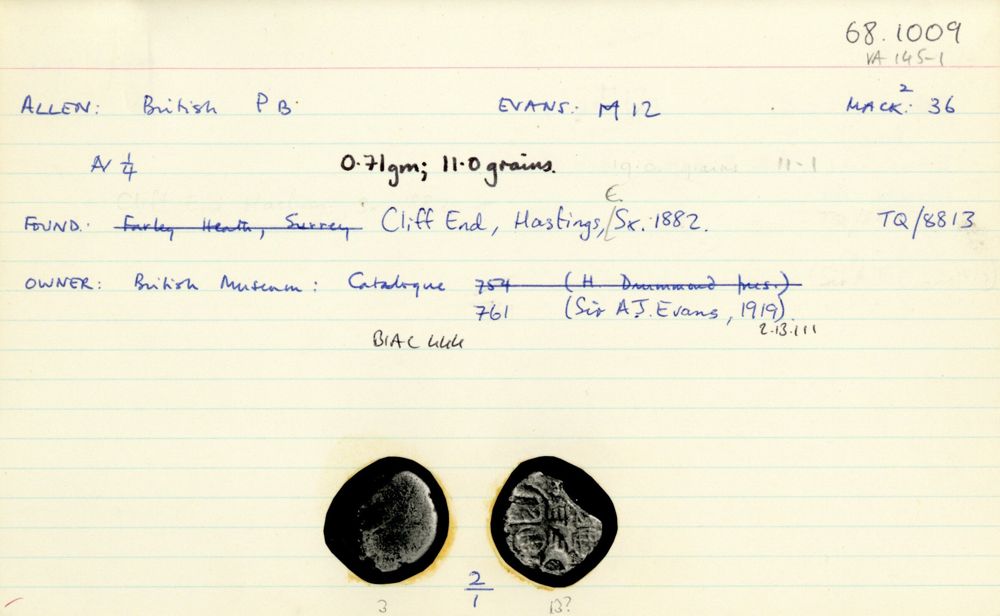 68.1009
VA 145-1
ALLEN: British P B. EVANS: M 12 MACK²: 36
AV 1/4 0.71gm; 11.0 grains. 11-1
FOUND: Farley Heath, Surrey Cliff End, Hastings, E. Sx. 1882. TQ/8813
OWNER: British Museum: Catalogue 754 (H Drummond pres.)
761 (Sir A J. Evans, 1919)
2.13.111
BIAC
2/1
3 13?